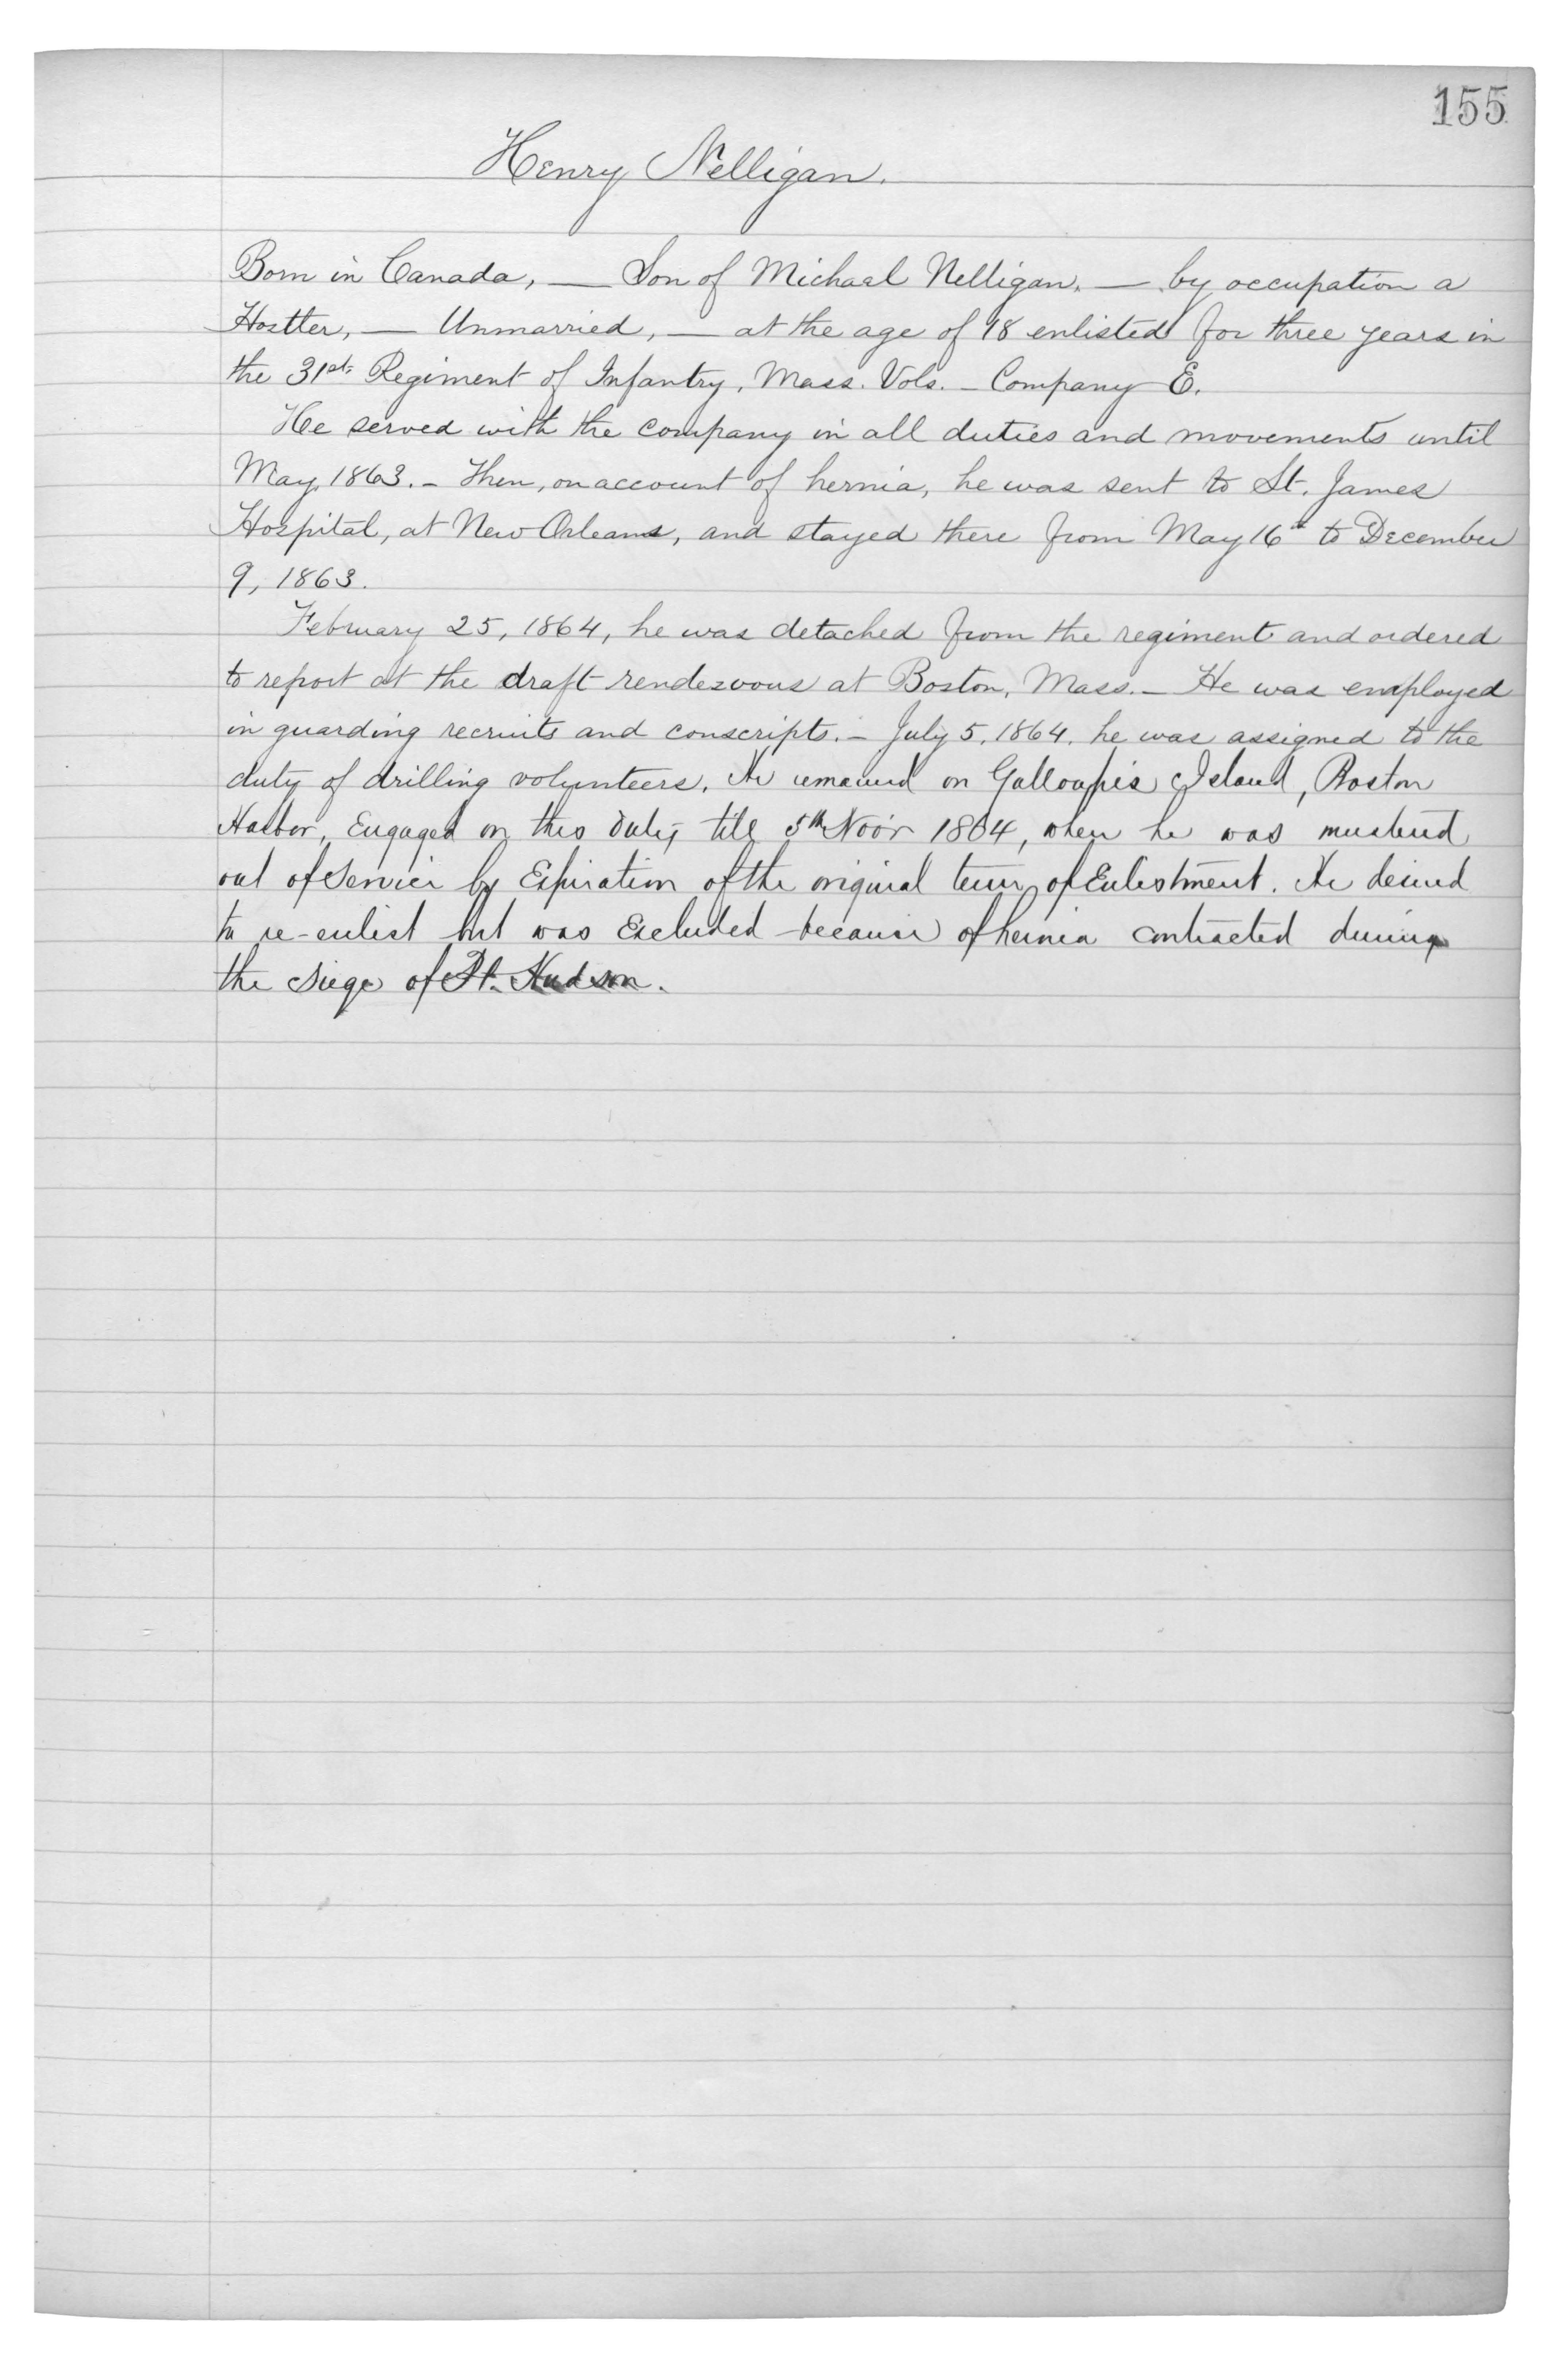 155
Henry Nelligan.
Born in Canada, — Son of Michael Nelligan, — by occupation a
Hostler, — Unmarried, — at the age of 18 enlisted for three years in
the 31st Regiment of Infantry, Mass. Vols. – Company E.
He served with the company in all duties and movements until
May, 1863. – Then, on account of hernia, he was sent to St. James
Hospital, at New Orleans, and stayed there from May 16th to December
9, 1863.
February 25, 1864, he was detached from the regiment and ordered
to report at the draft rendezvous at Boston, Mass. – He was employed
in guarding recruits and conscripts. – July 5, 1864, he was assigned to the
duty of drilling volunteers. He remained on Galloupe's Island, Boston
Harbor, Engaged on this duty till 5th Nov'r 1864, when he was mustered
out of service by Expiration of the original term of Enlistment. He desired
to re-enlist but was Excluded because of hernia contracted during
the siege of Pt. Hudson.